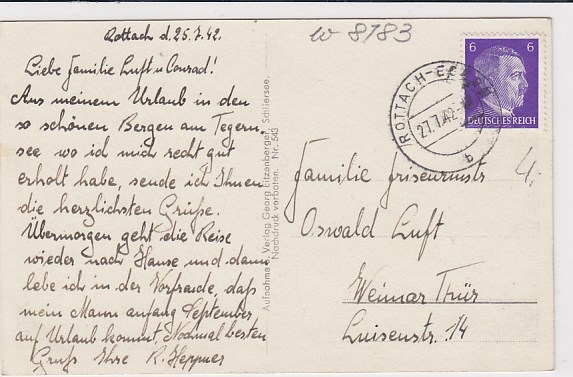 Rottach d. 25.7.42.
Liebe Familie Luft u Conrad!
Aus meinem Urlaub in den
so schönen Bergen am Tegern,
see wo ich mich recht gut
erholt habe, sende ich Ihnen
die herzlichsten Grüße.
Übermorgen geht die Reise
wieder nach Hause und dann
lebe ich in der Vorfreude, daß
mein Mann anfang September
auf Urlaub kommt. Nochmal besten
Gruß Ihre R. Heppner
Aufnahme u. Verlag Georg Eitzenberger, Schliersee.
Nachdruck verboten. Nr. 543
W 8183
6 6
DEUTSCHES REICH
ROTTACH-
27.7.42
b
Familie Friseurmstr
Oswald Luft
Weimar Thür
Luisenstr. 14
4,-